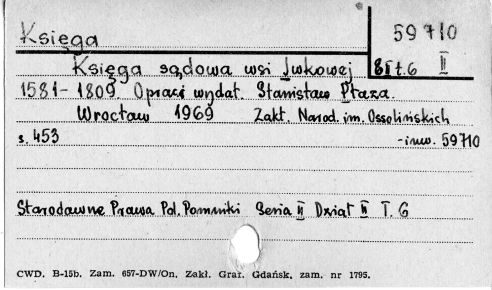 Księga
59710
II
Księga sądowa wsi Iwkowej
8I t.6
1581-1809. Oprac i wydał. Stanisław Płaza.
Wrocław 1969 Zakł. Narod. im. Ossolińskich
s. 453
-inw. 59710
Starodawne Prawa Pol. Pomniki Seria II Dział II T. 6
CWD. B-15b. Zam. 657-DW/On. Zakł. Graf. Gdańsk, zam. nr 1795.